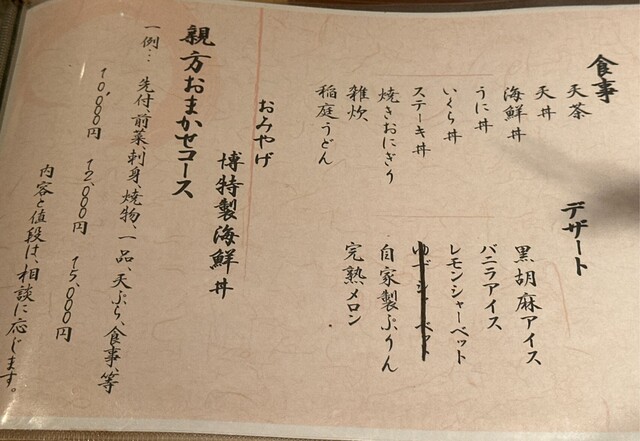 食事
天茶
天丼
海鮮丼
うに丼
いくら丼
ステーキ丼
焼きおにぎり
雑炊
稲庭うどん
デザート
黒胡麻アイス
バニラアイス
レモンシャーベット
ゆずシャーベット
自家製ぷりん
完熟メロン
おみやげ
博特製海鮮丼
親方おまかせコース
一例… 先付、前菜、刺身、焼物、一品、天ぷら、食事、等
10,000円 12,000円 15,000円
内容と値段は、相談に応じます。